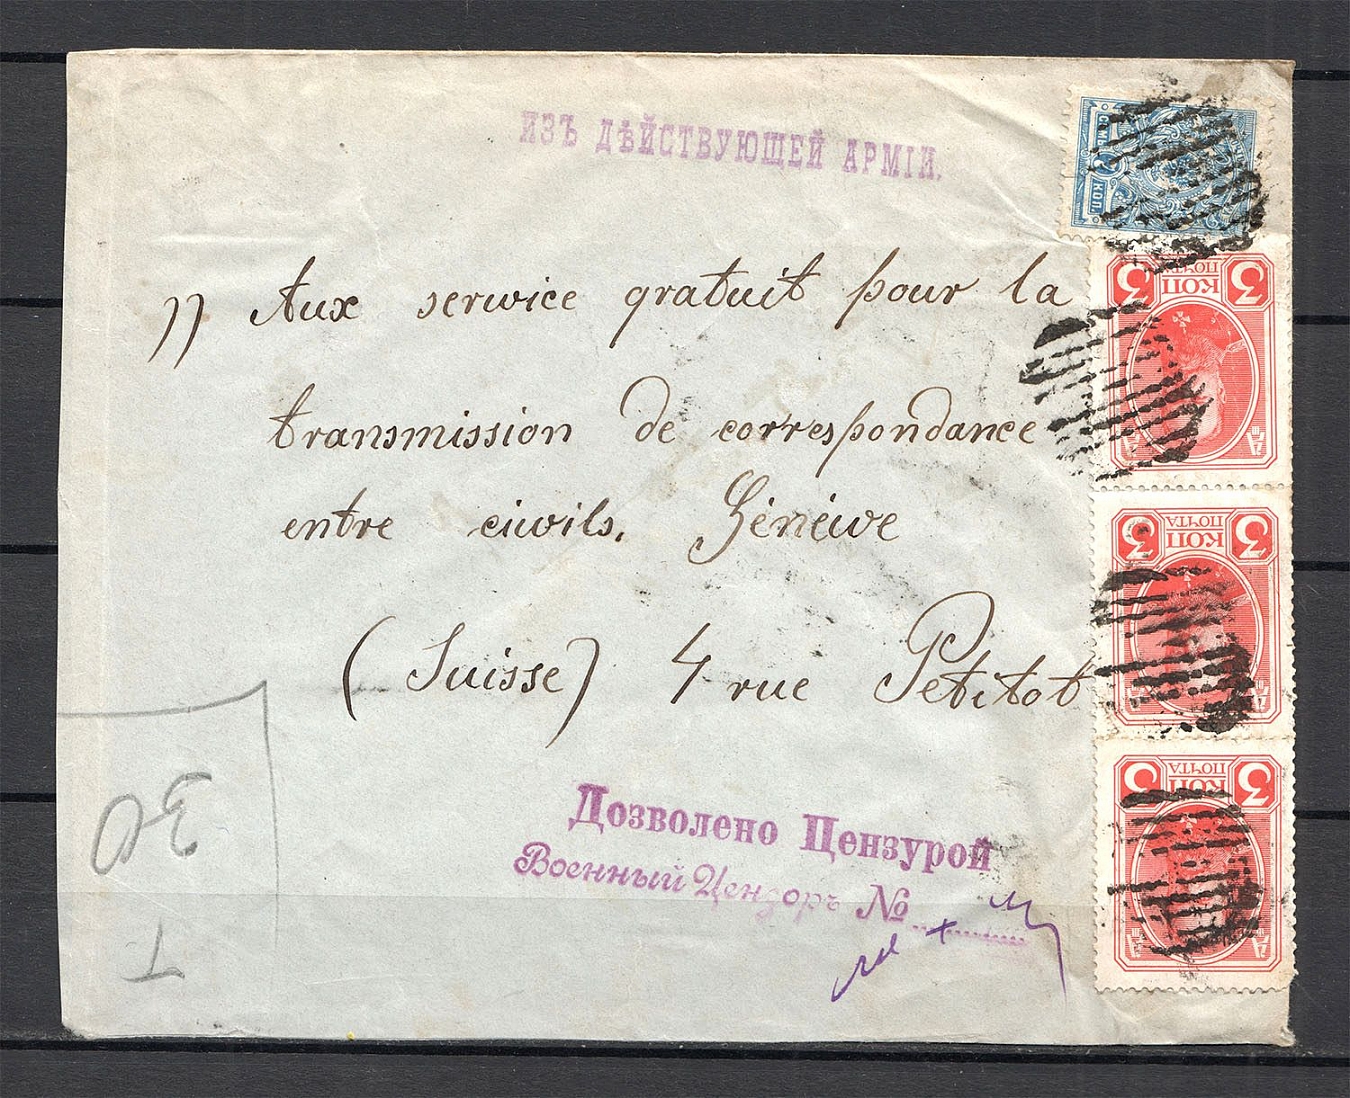 ИЗЪ ДѢЙСТВУЮЩЕЙ АРМІИ.
СЕМЬ 7 КОП.
)) Aux serwice gratuit pour la
transmission de correspondance
entre ciwils. Génèwe
(Suisse) 4 rue Petitot
3 КОП 3
ПОЧТА
3 КОП 3
ПОЧТА
3 КОП 3
ПОЧТА
Дозволено Цензурой
Военный Цензоръ №
30
T